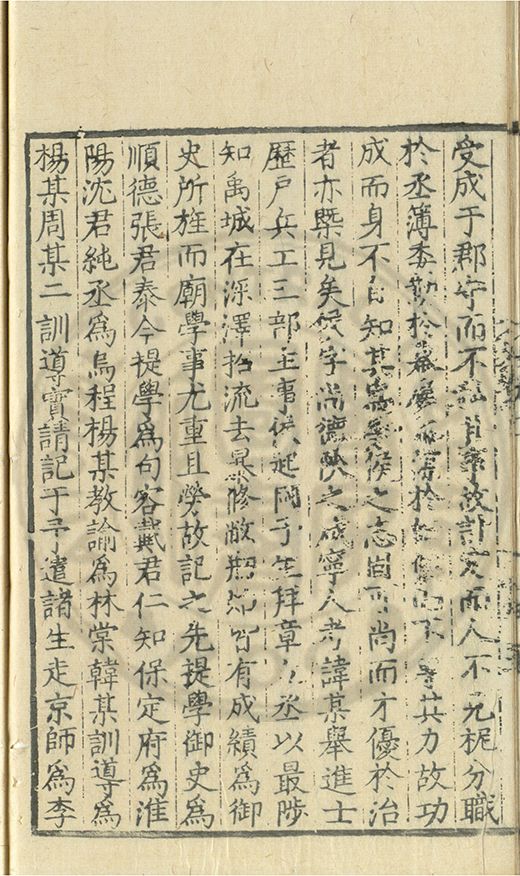 受成于郡守而不事故計定而人不柅分職
於丞薄委勤於於不其力故功
成而身不自知其之志固可尚而才優於治
者亦槩見矣侯字尚德陝之咸寧人考諱某舉進士
歷戶兵工三部主事起于拜章丞以最陟
知禹城在深澤招流去修敝皆有成績爲御
史所旌而廟學事尤重且勞故記之先提學御史爲
順德張君泰今提學爲句容戴君仁知保定府爲淮
陽沈君純丞爲烏程楊某教諭爲林棠韓某訓導爲
楊某周某二訓導實請記于予遣諸生走京師爲李